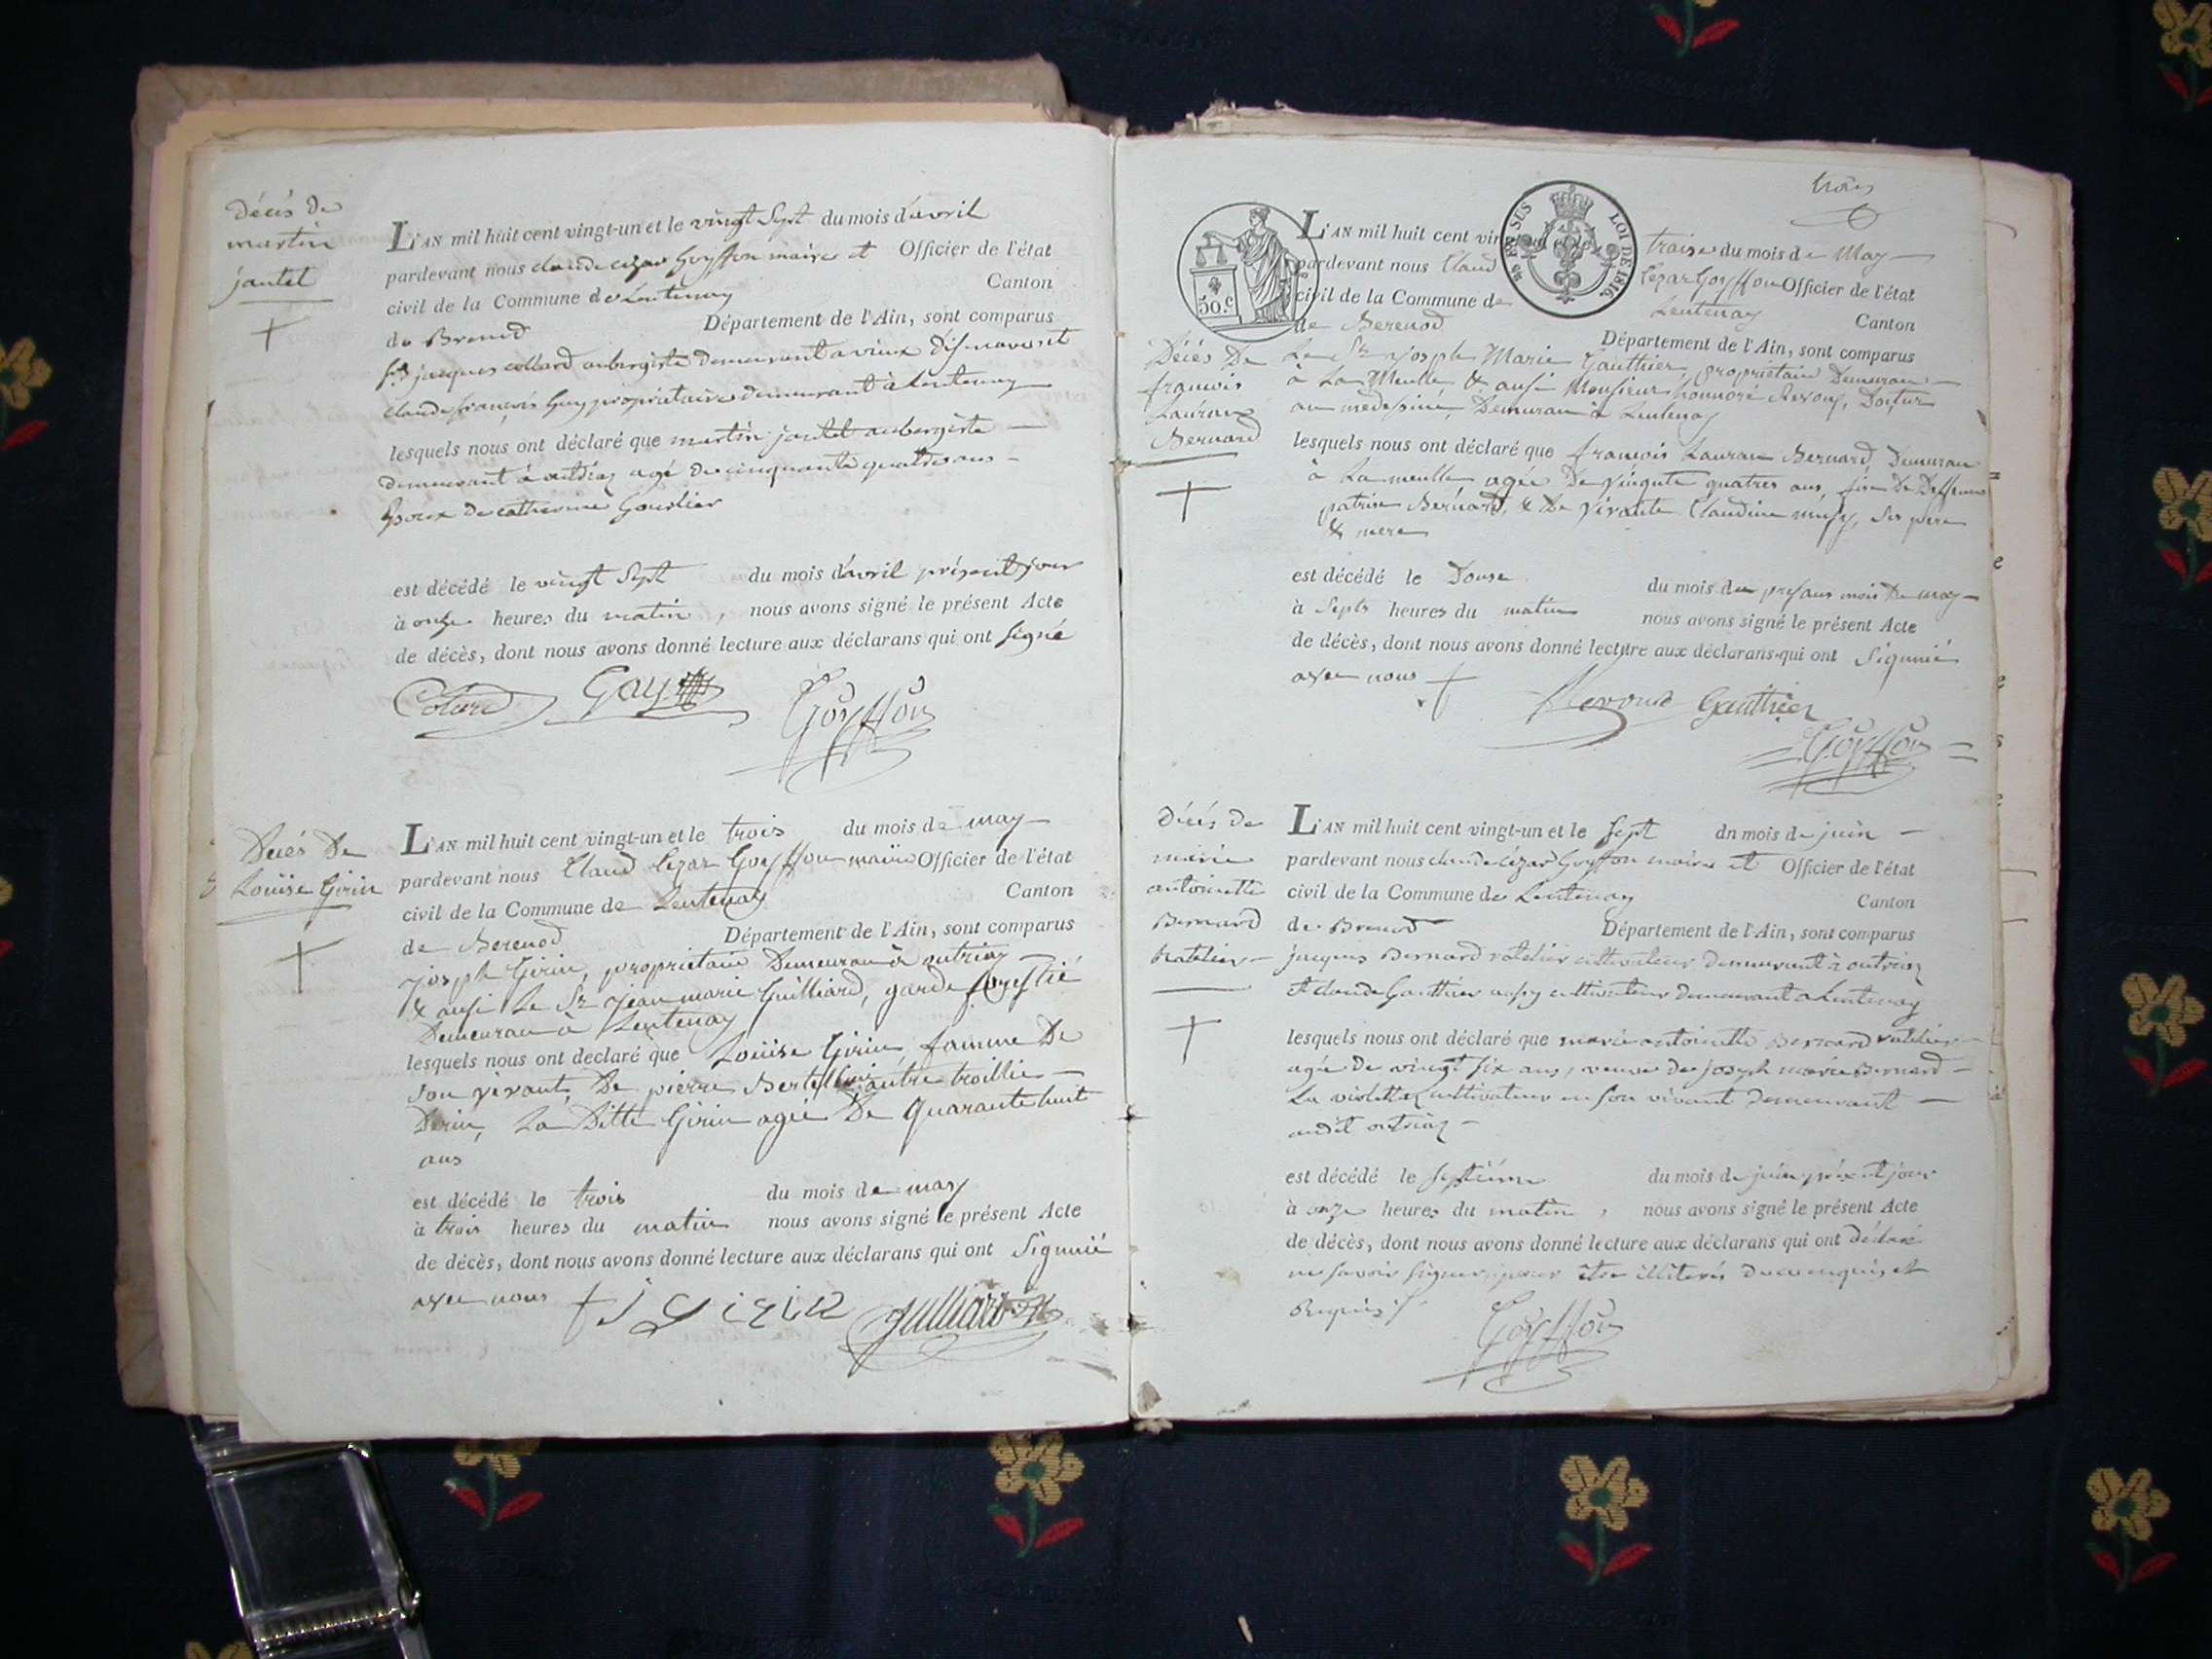 Décès de
martin
jantet
L'AN mil huit cent vingt-un et le vingt Sept du mois d'avril
pardevant nous claude cézar Goyffon maire et Officier de l'état
civil de la Commune de Lentenay Canton
de Brenod Département de l'Ain, sont comparus
jacques collard aubergiste demeurant a vieux et
claude françois Guy propriétaire demeurant à Lentenay
lesquels nous ont déclaré que martin jantet aubergiste
demeurant à outriaz agé de cinquante quatre ans
Epoux de catherine
est décédé le vingt Sept du mois d'avril présent jour
à onze heures du matin, nous avons signé le présent Acte
de décès, dont nous avons donné lecture aux déclarans qui ont signé
Colard Goyffon
Décés De
Louise Girin
L'AN mil huit cent vingt-un et le trois du mois de may
pardevant nous Claud Cezar Goyffon maire Officier de l'état
civil de la Commune de Lentenay Canton
de Berenod Département de l'Ain, sont comparus
joseph Girin, proprietaire Demeuran à outriaz
& ausi Le Sr jean marie Guilliard, garde forestié
Demeuran à Lentenay
lesquels nous ont declaré que Louise Girin famme De
Son vivant, De pierre autre
La Ditte Girin agée De quarante huit
ans
est décédé le trois du mois de may
à trois heures du matin nous avons signé le présent Acte
de décès, dont nous avons donné lecture aux déclarans qui ont Signnié
avec nous
j girin guilliard
trois
50.c
EN SUS LOI DE 1816.
L'AN mil huit cent vingt-un et le traise du mois de May
pardevant nous Claud Cezar Goyffon Officier de l'état
civil de la Commune de Lentenay Canton
de Berenod Département de l'Ain, sont comparus
Décés De
françois
Lauran
Bernard
Le Sr joseph Marie Gauthier, proprietaire Demuran
à La Meulle & ausi Monsieur honnoré Doctur
an medesine, Demuran à Lentenay
lesquels nous ont déclaré que françois Lauran Bernard, Demuran
à La meulle agée De vingute quatres ans,
Bernard, & De vivante Claudine ses pere
& mere
est décédé le Douse du mois du presans mois De may
à Septs heures du matin nous avons signé le présent Acte
de décès, dont nous avons donné lecture aux déclarans qui ont Signnié
avec nous
Gauthier
Goyffon
Décés de
marie
antoinette
Bernard
ratelier
L'AN mil huit cent vingt-un et le sept dn mois de juin
pardevant nous claude cézar Goyffon maire et Officier de l'état
civil de la Commune de Lentenay Canton
de Brenod Département de l'Ain, sont comparus
jacques Bernard ratelier cultivateur demeurant à outriaz
et claude Gauthier aussy cultivateur demeurant a Lentenay
lesquels nous ont déclaré que marie antoinette Bernard ratelier
agée de vingt six ans, veuve de joseph marie Bernard
La violette cultivateur en son vivant demeurant
audit outriaz
est décédé le septième du mois de juin présent jour
à onze heures du matin, nous avons signé le présent Acte
de décès, dont nous avons donné lecture aux déclarans qui ont déclaré
ne savoir signer pour être illiterés de ce enquis et
Requis
Goyffon